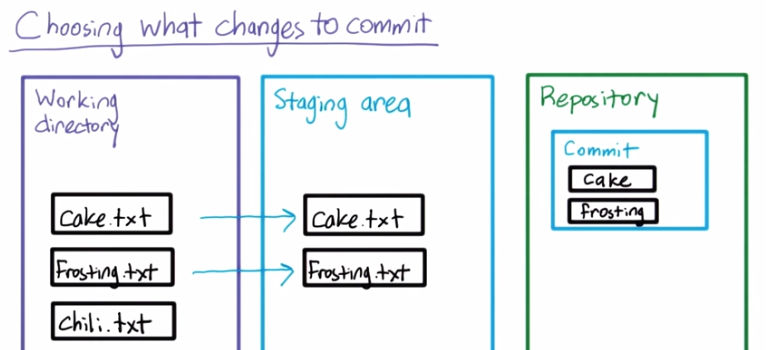 Choosing what changes to commit
Working
directory
Cake.txt
Frosting.txt
Chili.txt
Staging area
Cake.txt
Frosting.txt
Repository
Commit
Cake
frosting